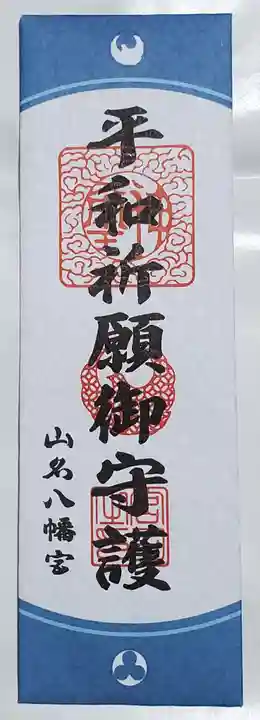 平和祈願御守護
山名八幡宮